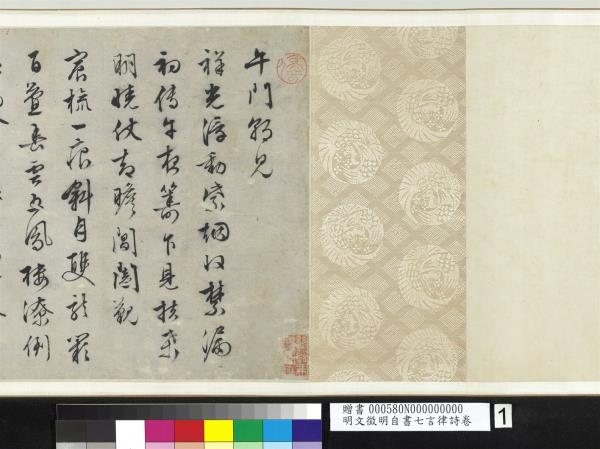 午門朝見
祥光浮動紫烟收禁漏
初傳午夜籌乍見扶桑
明曉仗瞻閶闔覲
宸旒一痕斜月雙龍闕
百疊春雲五鳳樓潦倒
贈書 000580N000000000
明文徵明自書七言律詩卷
1